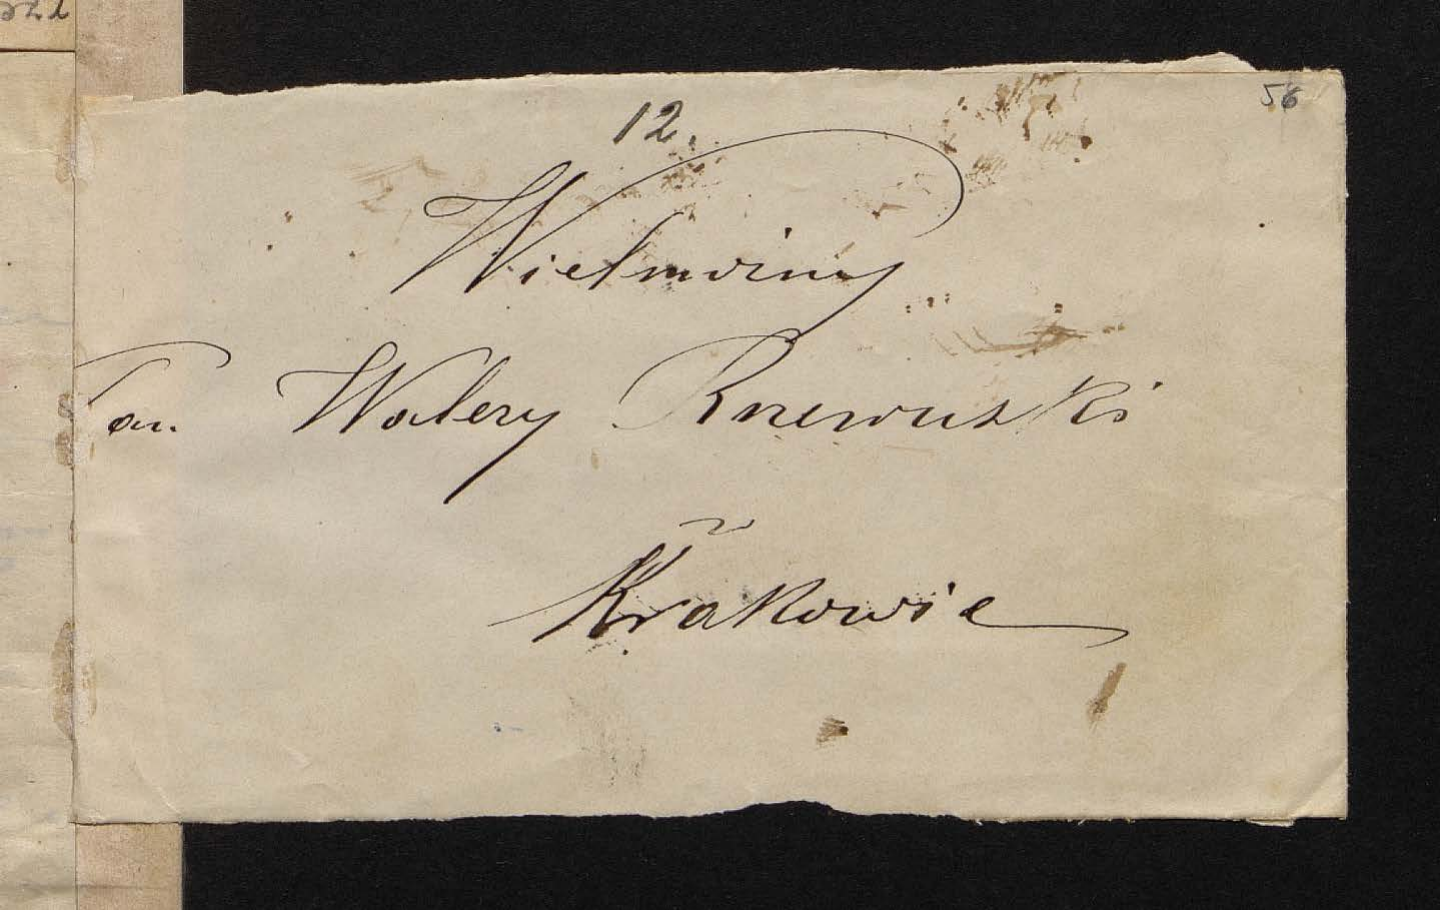 56
12.
Wielmożny
Pan Walery Rzewuski
w
Krakowie